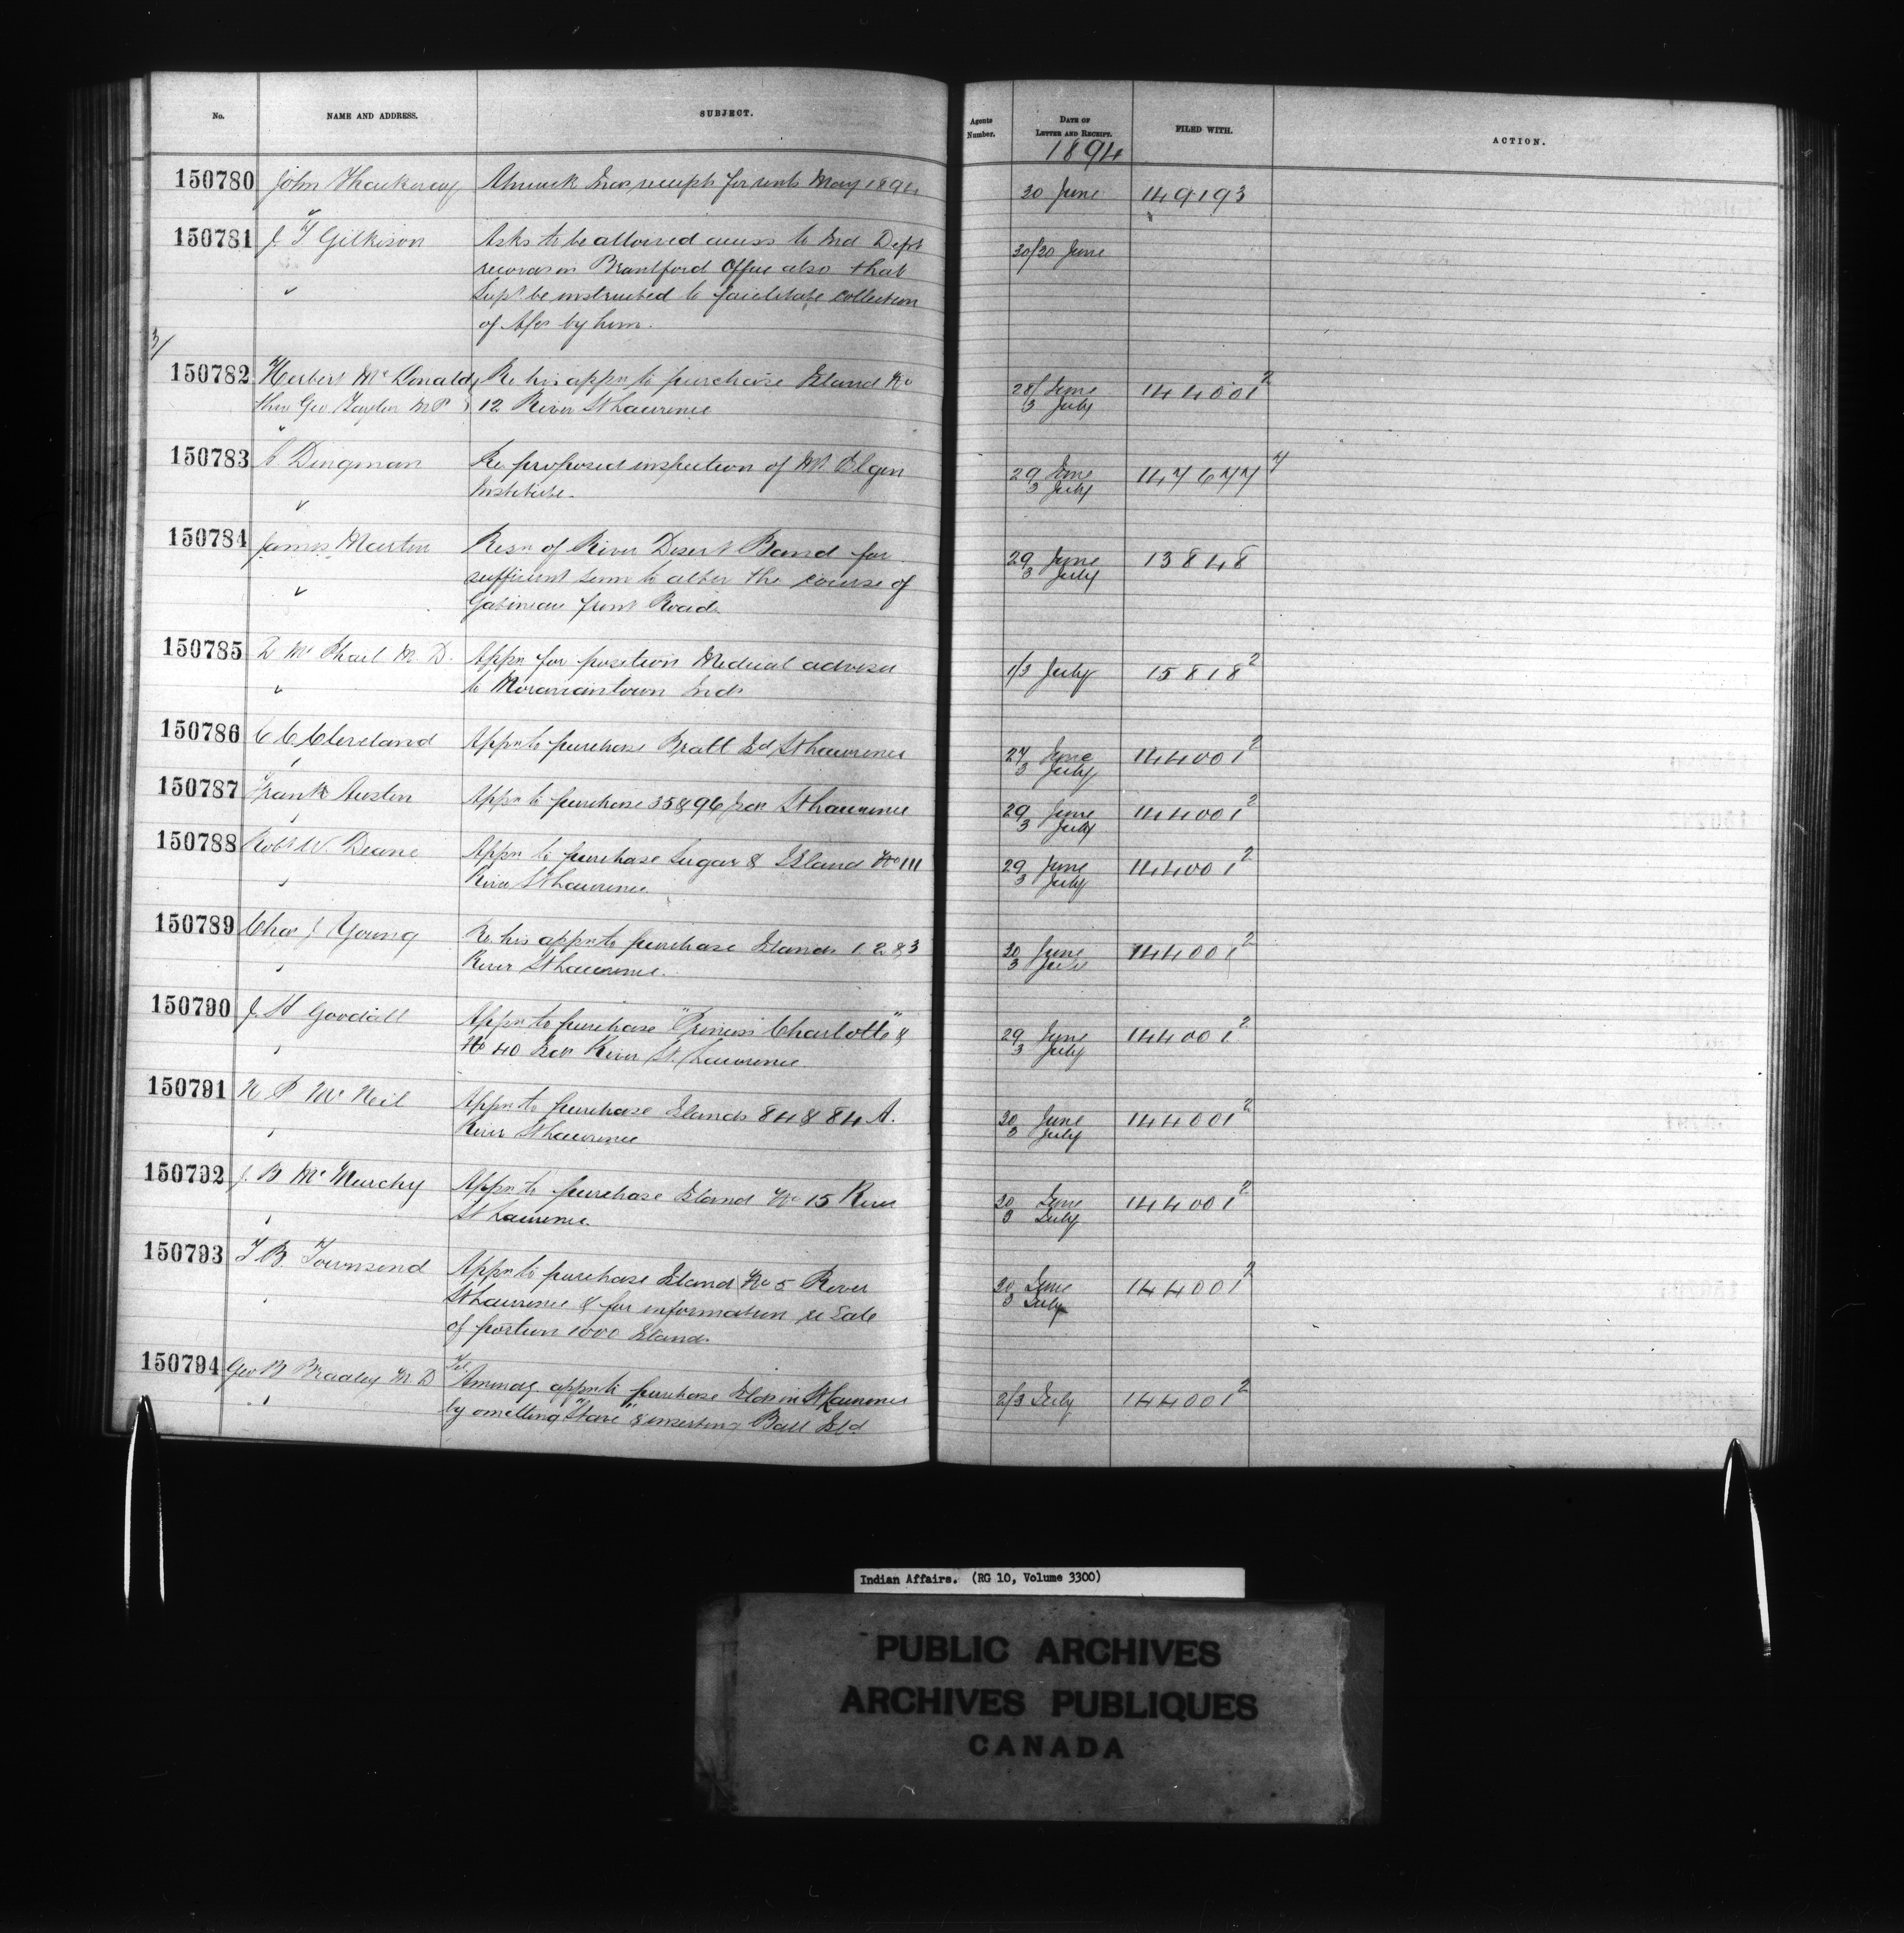 No. NAME AND ADDRESS. SUBJECT. Agents Number. DATE OF LETTER AND RECEIPT. FILED WITH. ACTION.
1894
150780 John Thackeray Alnwick Encs receipts for rents May 1894 30 June 149193
150781 J. T Gilkison Asks to be allowed access to Ind Dept 30/30 June
records in Brantford Office also that
Supt be instructed to facilitate collection
of by him.
3/
150782 Herbert Mc Donald Re his appn to purchase Island No 28/ June 144001 2
thro Geo Taylor M P 12 River St Lawrence 3 July
150783 C. Dingman Re proposed inspection of Mt Elgin 29 June 147677 4
Institute. 3 July
150784 James Martin Resn of River Desert Band for 29 June 13848
sufficient sum to alter the course of 3 July
Gatineau front Road
150785 Mc Phail M D. Appn for position Medical adviser 1/3 July 15818 2
to Moraviantown Inds
150786 C C Cleveland Appn to purchase Bratt Isd St Lawrence 27 June 144001 2
3 July
150787 Frank Austin Appn to purchase 35 & 96 Isds St Lawrence 29 June 144001 2
3 July
150788 Robt W. Deane Appn to purchase Sugar & Island No 111 29 June 144001 2
River St Lawrence 3 July
150789 Chas J Young Re his appn to purchase Islands 1 2 & 3 30 June 144001 2
River St Lawrence. 3 July
150790 J. H Goodall Appn to purchase "Princess Charlotte" & 29 June 144001 2
No 40 Isds River St. Lawrence 3 July
150791 N P Mc Neil Appn to purchase Islands 84 & 84 A. 30 June 144001 2
River St Lawrence 3 July
150792 J. B Mc Murchy Appn to purchase Island No 15 River 30 June 144001 2
St Lawrence. 3 July
150793 T B. Townsend Appn to purchase Island No 5 River 30 June 144001 2
St Lawrence & for information re Sale 3 July
of portion 1000 Islands
150794 Geo B Bradley M. D Tel. Amendg appn to purchase Isds in St Lawrence 2/3 July 144001 2
by omitting "Stave" & inserting Ball Isld
Indian Affairs. (RG 10, Volume 3300)
PUBLIC ARCHIVES
ARCHIVES PUBLIQUES
CANADA